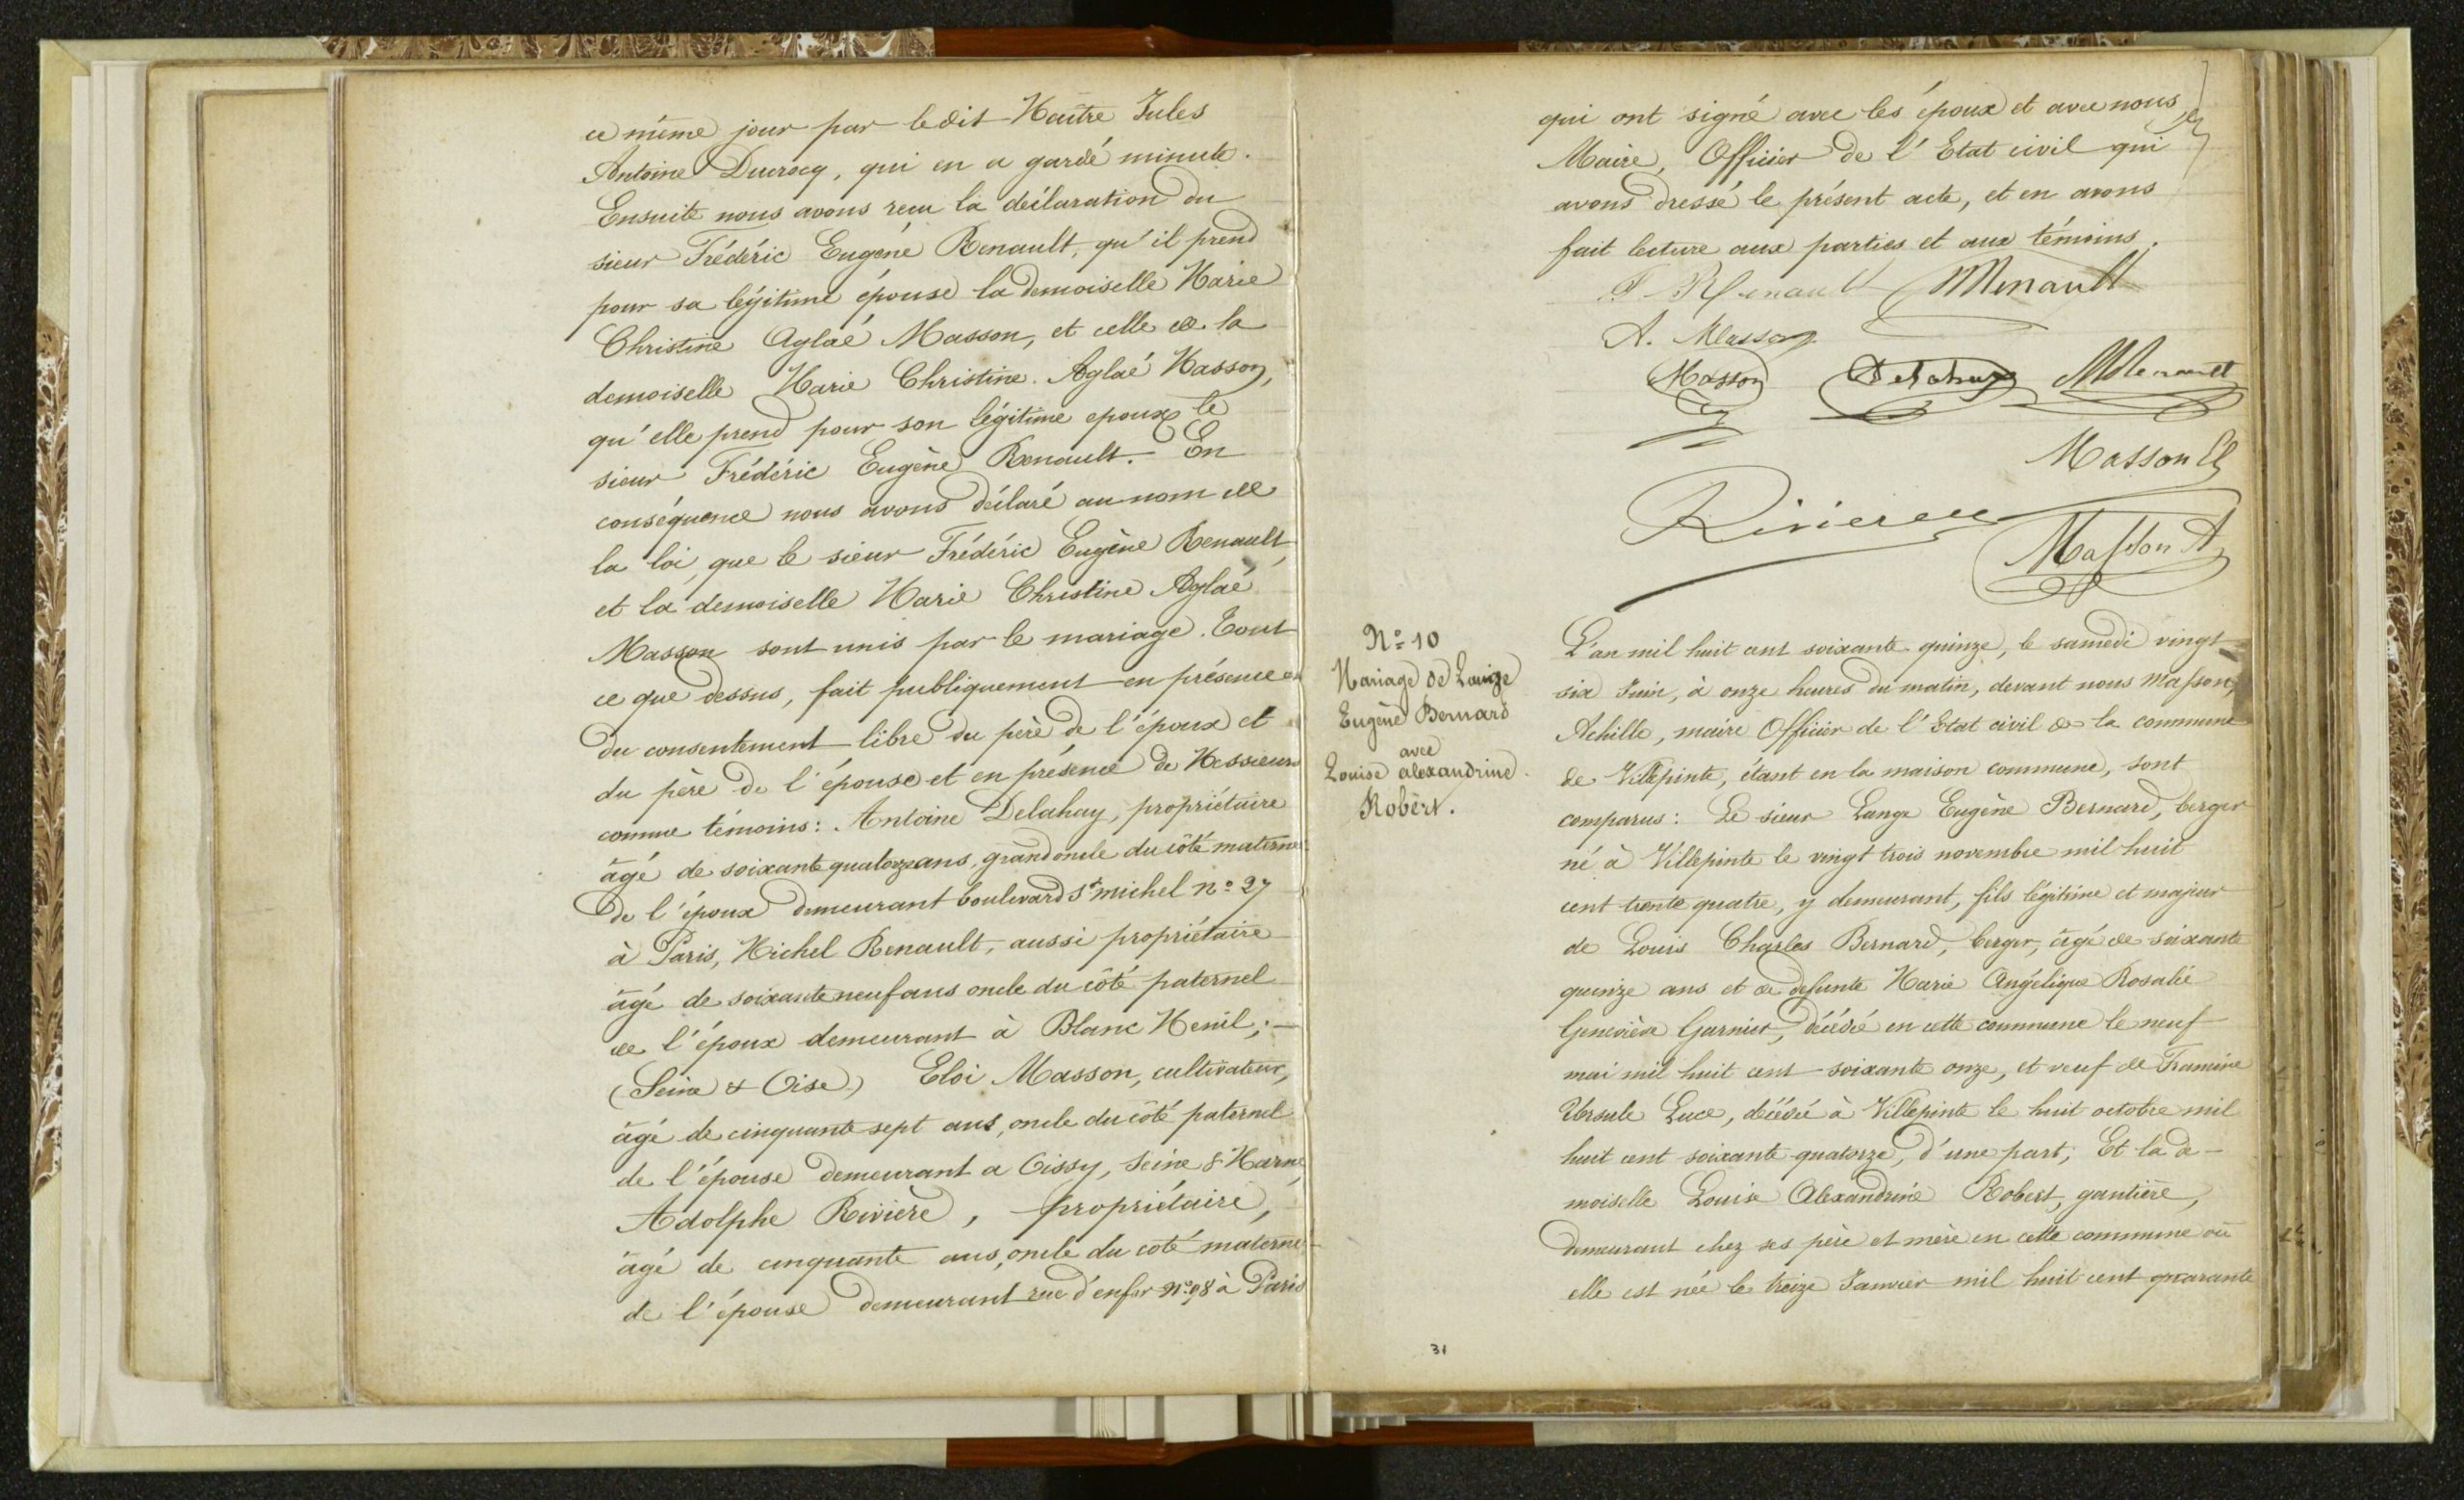 ce même jour par ledit Maître Jules
Antoine Ducrocq, qui en a gardé minute.
Ensuite nous avons reçu la déclaration du
sieur Frédéric Eugène Renault, qu'il prend
pour sa légitime épouse la demoiselle Marie
Christine Aglaé Masson, et celle de la
demoiselle Marie Christine Aglaé Masson,
qu'elle prend pour son légitime epoux le
sieur Frédéric Eugène Renault. En
conséquence nous avons déclaré au nom de
la loi, que le sieur Frédéric Eugène Renault,
et la demoiselle Marie Christine Aglaé
Masson sont unis par le mariage. Tout
ce que dessus, fait publiquement en présence et
du consentement libre du père de l'époux et
du père de l'épouse et en présence de Messieurs
comme témoins: Antoine Delahay, propriétaire
âgé de soixante quatorze ans, grand oncle du côté maternel
de l'époux demeurant boulevard St michel no 27
à Paris, Michel Renault, aussi propriétaire
âgé de soixante neuf ans oncle du côté paternel
de l'époux demeurant à Blanc Menil,
(Seine & Oise) Eloi Masson, cultivateur,
âgé de cinquante sept ans, oncle du côté paternel
de l'épouse demeurant a Oissy, Seine & Marne,
Adolphe Rivière, propriétaire,
âgé de cinquante ans, oncle du coté maternel
de l'épouse demeurant rue d'enfer no 98 à Paris
qui ont signé avec les époux et avec nous
Maire, Officier de l'Etat civil qui
avons dressé le présent acte, et en avons
fait lecture aux parties et aux témoins.
F. Renault Renault
A. Masson
Masson Delahay Renault
Masson El
Riviere
Masson A
No 10
Mariage de Lange
Eugène Bernard
avec
Louise alexandrine
Robert.
L'an mil huit cent soixante quinze, le samedi vingt
six Juin, à onze heures du matin, devant nous Masson,
Achille, maire Officier de l'Etat civil de la commune
de Villepinte, étant en la maison commune, sont
comparus: Le sieur Lange Eugène Bernard, berger
né à Villepinte le vingt trois novembre mil huit
cent trente quatre, y demeurant, fils légitime et majeur
de Louis Charles Bernard, berger, âgé de soixante
quinze ans et de defunte Marie Angélique Rosalie
Geneviève Garnier, décédée en cette commune le neuf
mai mil huit cent soixante onze, et veuf de
Ursule Luce, décédée à Villepinte le huit octobre mil
huit cent soixante quatorze, d'une part; Et la de-
moiselle Louise Alexandrine Robert, gantière,
demeurant chez ses père et mère en cette commune où
elle est née le treize Janvier mil huit cent quarante
31